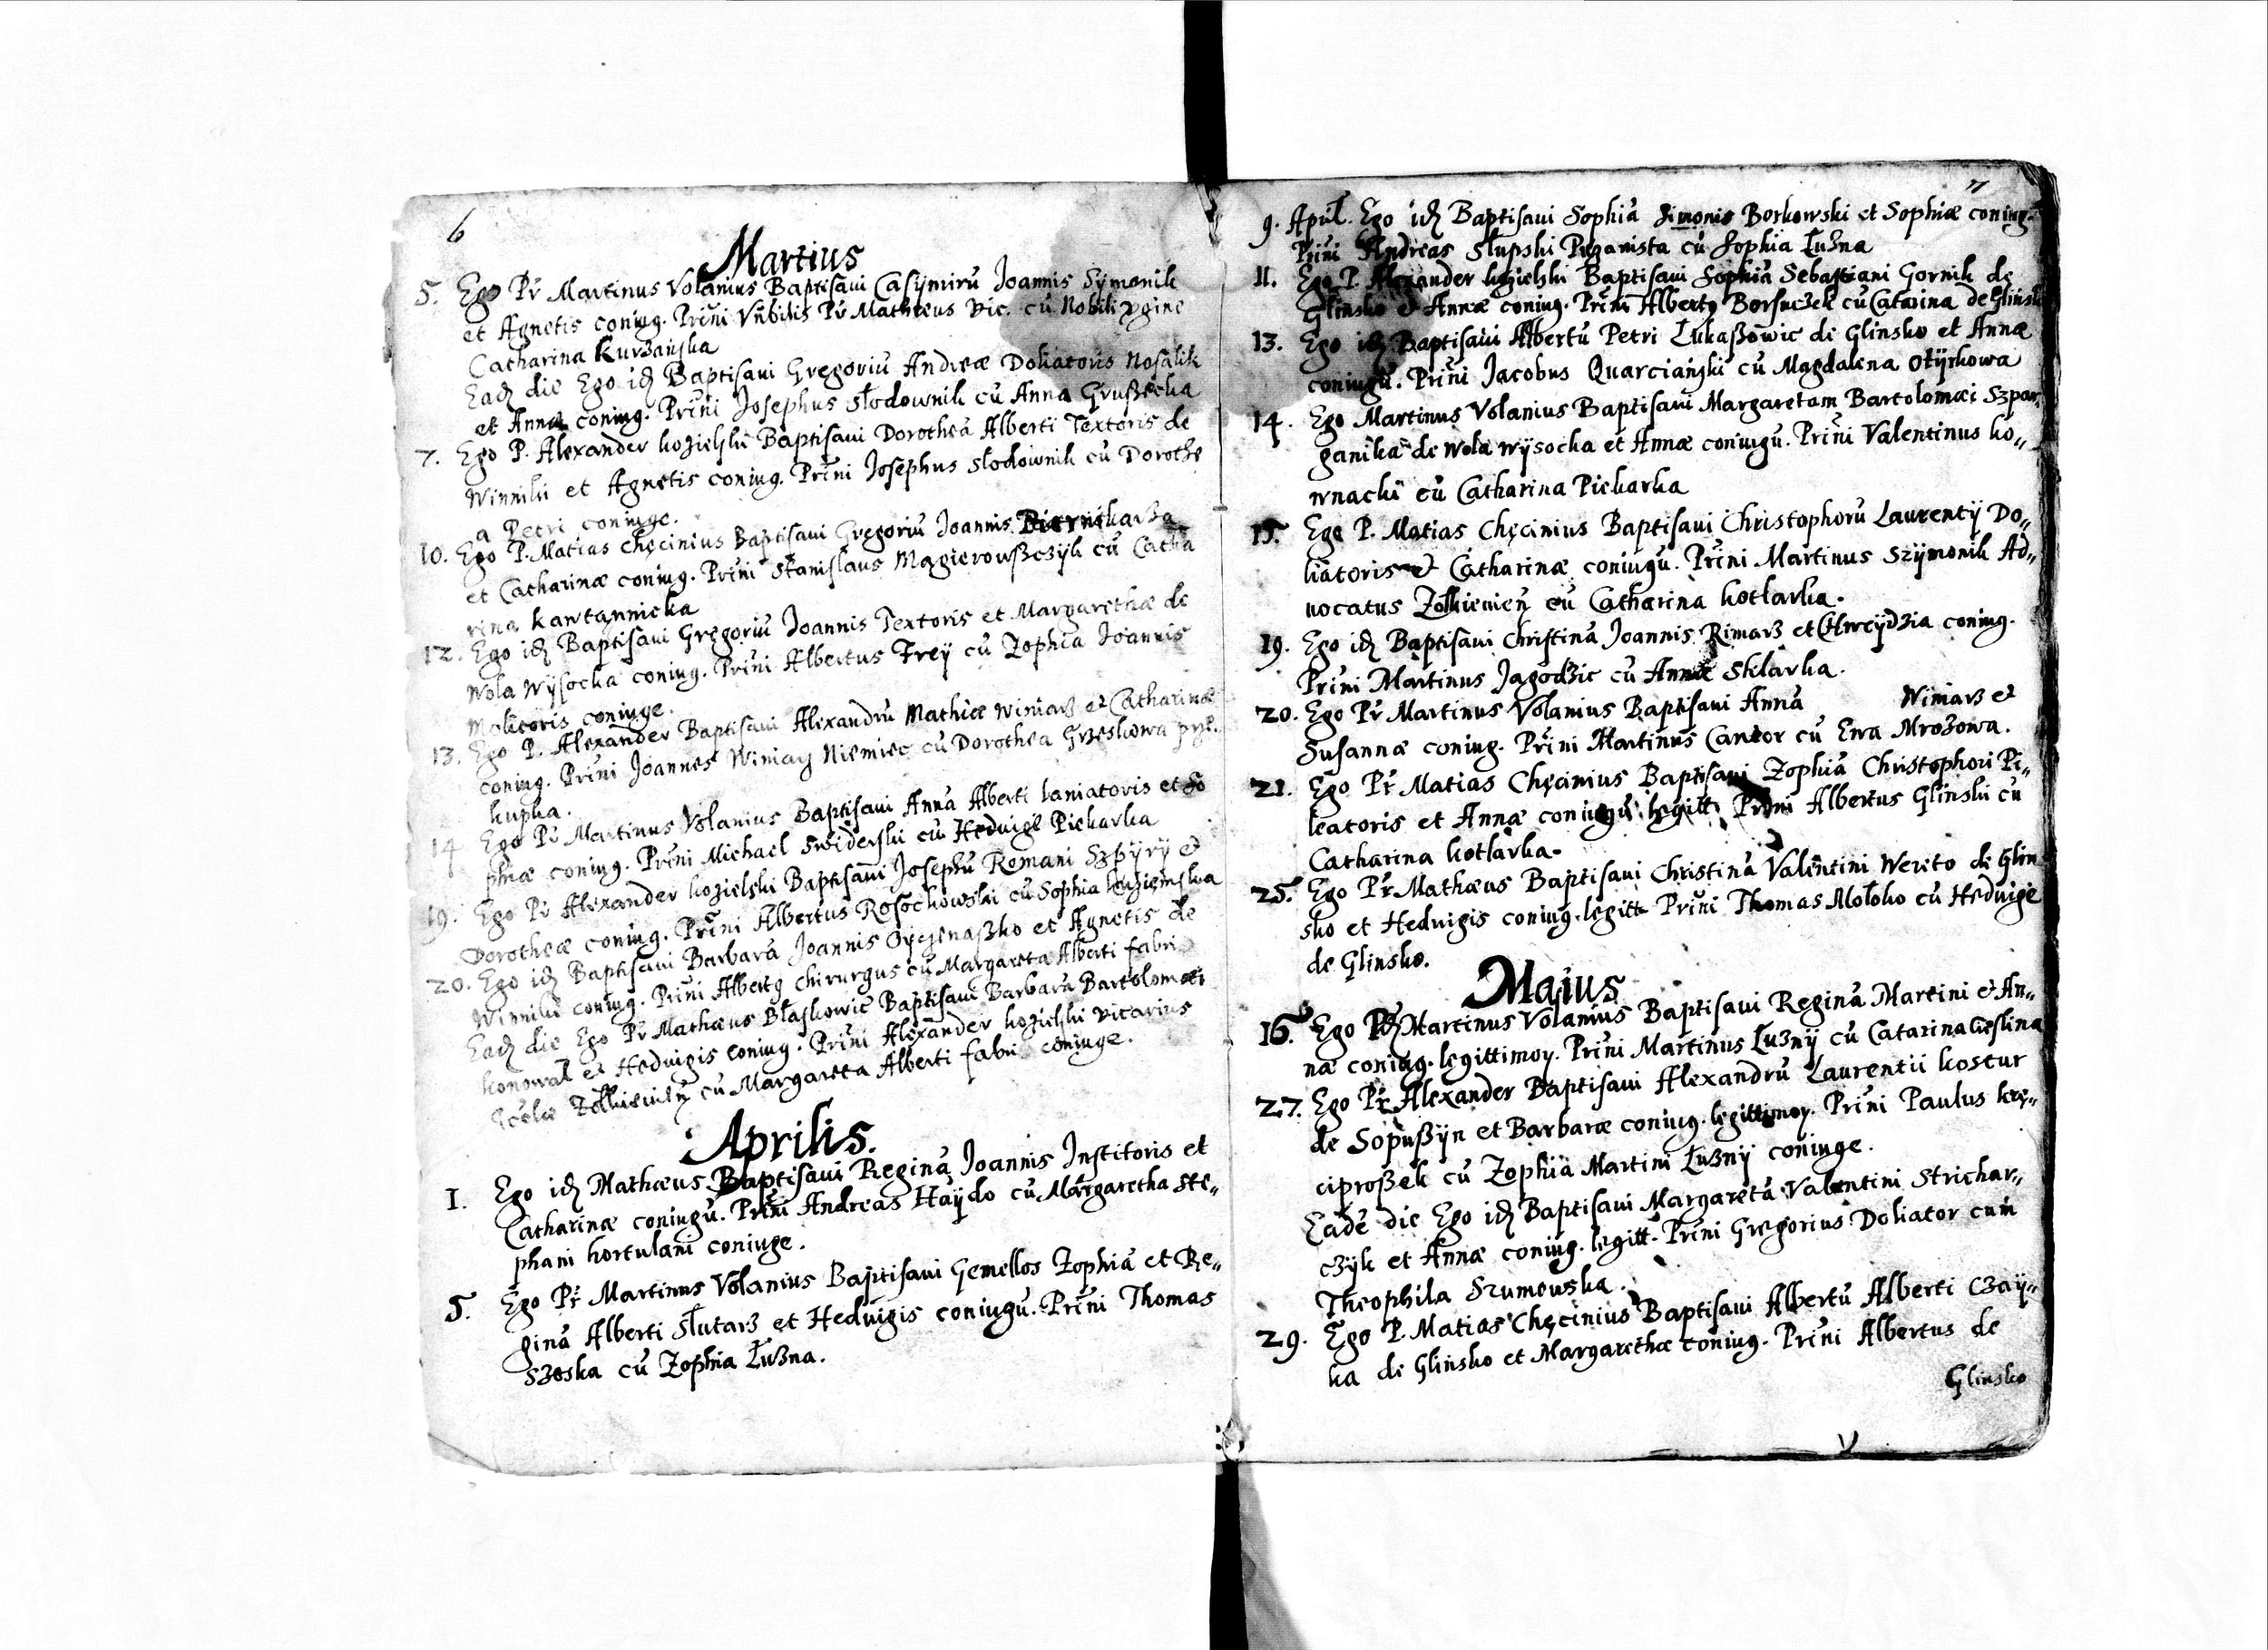 6
Martius
5. Ego Pr Martinus Volanius Baptisaui Casymirũ Joannis Symonik
et Agnetis coniug. Prini Vnbilis Pr Mathæus Vic. cũ Nobili Vgine
Catharina Kurzańska
Eadẽ die Ego idẽ Baptisaui Gregoriũ Andreæ Doliatoris Nosalik
et Annæ coniug. Prini Josephus Słodownik cũ Anna Grußecka
7. Ego P. Alexander Kozielski Baptisaui Dorotheã Alberti Textoris de
Winniki et Agnetis coniug. Prini Josephus Słodownik cũ Dorothe
a Petri coniuge.
10. Ego P. Matias Chęcinius Baptisaui Gregoriũ Joannis
et Catharinæ coniug. Prini Stanislaus Magierowßczyk cũ Catha
rina Kawtannicka
12. Ego idẽ Baptisaui Gregoriũ Joannis Textoris et Margarethæ de
Wola Wÿsocka coniug. Prini Albertus Freÿ cũ Zophia Joannis
Molitoris coniuge.
13. Ego P. Alexander Baptisaui Alexandrũ Mathiæ Winiarz et Catharinæ
coniug. Prini Joannes Winiarz Niemiec cũ Dorothea Grzeskowa
kupka.
14 Ego Pr Martinus Volanius Baptisaui Annã Alberti Laniatoris et So
phiæ coniug. Prini Michael Swiderski cũ Heduige Piekarka
19. Ego Pr Alexander Kozielski Baptisaui Josephũ Romani Szpÿrÿ et
Dorotheæ coniug. Prini Albertus Rosochowski cũ Sophia
20. Ego idẽ Baptisaui Barbarã Joannis Oÿczenaszko et Agnetis de
Winniki coniug. Prini Albertg Chirurgus cũ Margareta Alberti fabri
Eadẽ die Ego Pr Mathæus Błaskowic Baptisaui Barbarã Bartolomæi
Konował et Heduigis coniug. Prini Alexander Kozielski Vicarius
Ecclæ Zołkieuień cũ Margareta Alberti fabri coniuge.
Aprilis.
1. Ego idẽ Mathæus Baptisaui Reginã Joannis Institoris et
Catharinæ coniugũ. Prini Andreas Haÿdo cũ Margaretha Ste„
phani hortulani coniuge.
5. Ego Pr Martinus Volanius Baptisaui Gemellos Zophiã et Re„
ginã Alberti Slutarz et Heduigis coniugũ. Prini Thomas
Szoska cũ Zophia Łuzna.
7
9. April. Ego idẽ Baptisaui Sophiã Simonis Borkowski et Sophiæ coniug.
Prini Andreas Słupski Puzanista cũ Sophia Łuzna
11. Ego P. Alexander Kozielski Baptisaui Sophiã Sebastiani Gornik de
Glinsko et Annæ coniug. Prini Albertg Borsuczek cũ Catarina de Glinsk
13. Ego idẽ Baptisaui Albertũ Petri Łukaßowic de Glinsko et Annæ
coniugũ. Prini Jacobus Quarciański cũ Magdalena Otÿrkowa
14. Ego Martinus Volanius Baptisaui Margaretam Bartolomæi Szpar„
ganika de Wola Wÿsocka et Annæ coniugũ. Prini Valentinus Ko„
wnacki cũ Catharina Piekarka
15. Ego P. Matias Chęcinius Baptisaui Christophorũ Laurentÿ Do„
liatoris et Catharinæ coniugũ. Prini Martinus Szÿmonik Ad„
uocatus Zołkieuień cũ Catharina Kotlarka.
19. Ego idẽ Baptisaui Christinã Joannis Rimarz et coniug.
Prini Martinus Jagodzic cũ Anna Sklarka.
20. Ego Pr Martinus Volanius Baptisaui Annã Winiarz et
Susannæ coniug. Prini Martinus Cantor cũ Ewa Mrozowa.
21. Ego Pr Matias Chęcinius Baptisaui Zophiã Christophori Pi„
leatoris et Annæ coniugũ legitt. Prini Albertus Glinski cũ
Catharina Kotlarka.
25. Ego Pr. Mathæus Baptisaui Christinã Valentini Wereto de Glin
sko et Heduigis coniug. legitt. Prini Thomas Moloko cũ Heduige
de Glinsko.
Maius
16. Ego Martinus Volanius Baptisaui Reginã Martini et An„
næ coniug. legittimoɤ. Prini Martinus Łuznÿ cũ Catarina Cieslina
27. Ego Pr Alexander Baptisaui Alexandrũ Laurentii Kostur
de Sopußÿn et Barbaræ coniug. legittimoɤ. Prini Paulus Krę„
ciproßek cũ Zophia Martini Łuznÿ coniuge.
Eadẽ die Ego idẽ Baptisaui Margaretã Valentini Strichar„
czÿk et Annæ coniug. legitt. Prini Gregorius Doliator cum
Theophila Szumowska.
29. Ego P. Matias Chęcinius Baptisaui Albertũ Alberti Czaÿ„
ka de Glinsko et Margarethæ coniug. Prini Albertus de
Glinsko